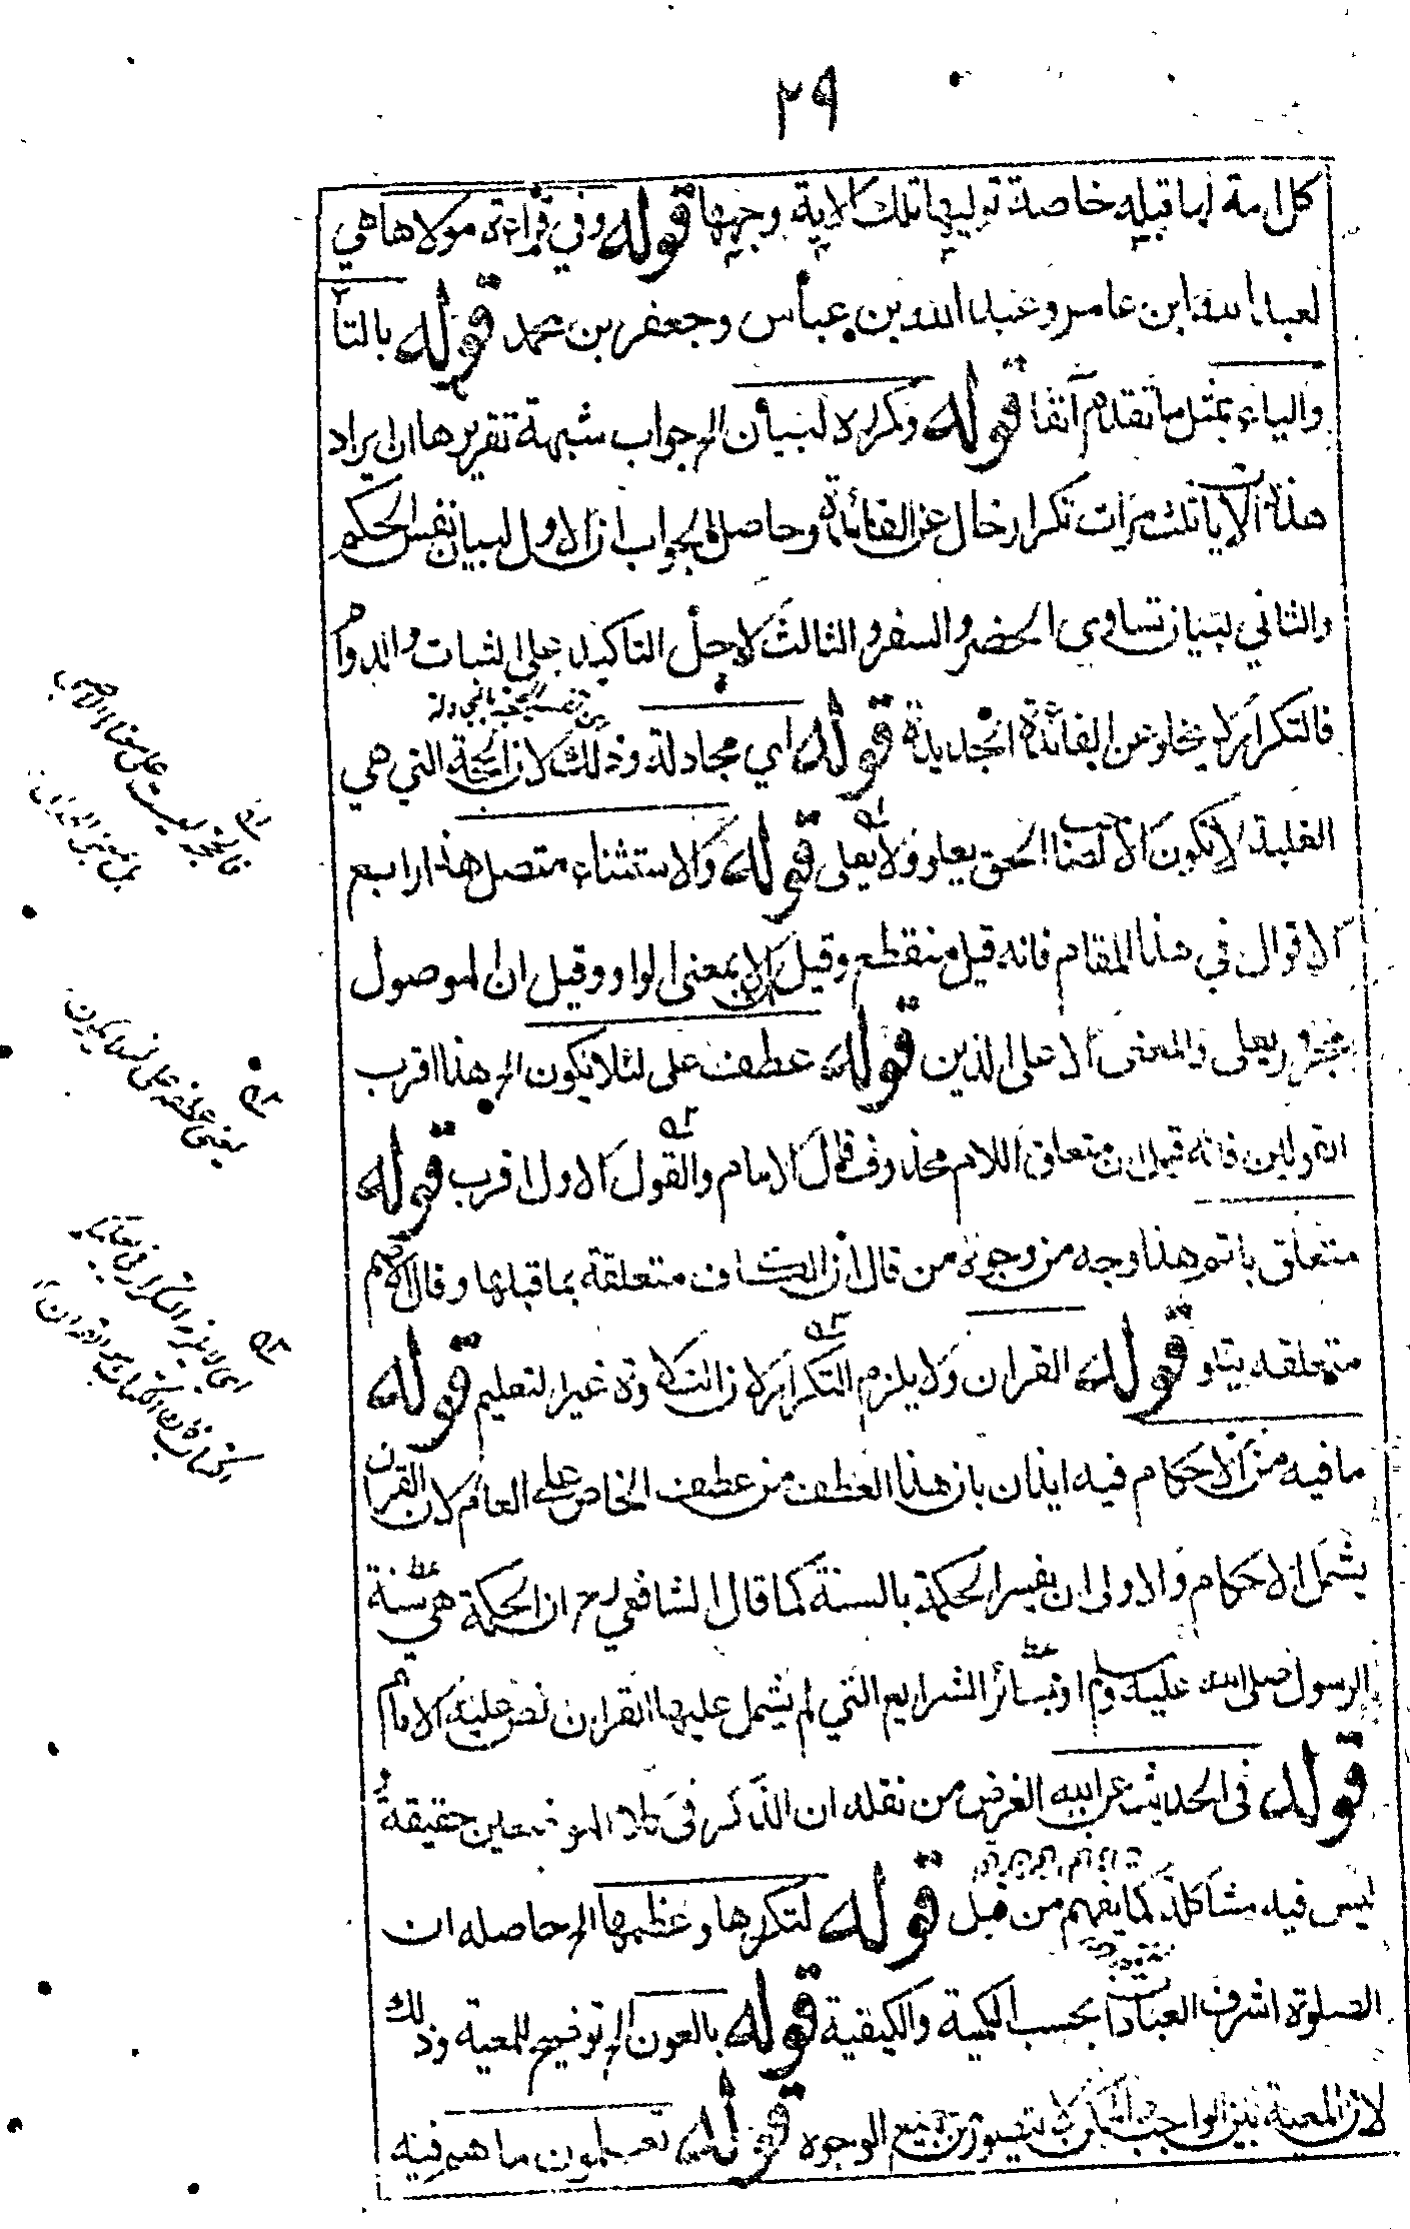 ٢٩
كل امة لها قبلة خاصة توليها تلك الاية وجهها قوله وفي قراءة مولاها هي
لعبد الله ابن عامر وعبد الله بن عباس وجعفر بن محمد قوله بالتا
والياء بمثل ما تقدم آنفا قوله وتكراره لبيان الخ جواب شبهة تقريرها ان ايراد
هذه الايات ثلث مرات تكرار خال عن الفائدة وحاصل الجواب ان الاول لبيان نفس الحكم
والثاني لبيان تساوي الحضر والسفر والثالث لاجل التاكيد على الثبات والدوام
فالتكرار لا يخلو عن الفائدة الجديدة قوله اي مجادلة وذلك لان الحجة التي هي
الغلبة لا تكون الا لصاحب الحق يعلو ولا يعلى قوله والاستثناء متصل هذا رابع
الاقوال في هذا المقام فانه قيل منقطع وقيل الا بمعنى الواو وقيل ان الموصول
مجرور بعلى والمعنى الا على الذين قوله عطف على لئلا يكون الخ هذا اقرب
القولين فانه قيل ان متعلق اللام محذوف قال الامام والقول الاول اقرب قوله
متعلق باتم هذا وجه من وجوه من قال ان الكاف متعلقة بما قبلها وقال الامام
متعلقه يتلو قوله القران ولا يلزم التكرار لان التلاوة غير التعليم قوله
ما فيه من الاحكام فيه ايذان بان هذا العطف من عطف الخاص على العام لان القران
يشمل الاحكام والاولى ان يفسر الحكمة بالسنة كما قال الشافعي رح ان الحكمة هي سنة
الرسول صلى الله عليه وسلم او بسائر الشرايع التي لم يشمل عليها القران نص عليه الامام
قوله في الحديث عن ابيه الغرض من نقله ان الذكر في كلا الموضعين حقيقة
ليس فيه مشاكلة كما يفهم من قبل قوله لتكررها وعظمها الخ حاصله ان
الصلوة اشرف العبادات بحسب الكمية والكيفية قوله بالعون الخ توضيح للمعية وذلك
لان المعية بين الواجب والممكن لا يتصور من جميع الوجوه قوله تعلمون ما هم فيه